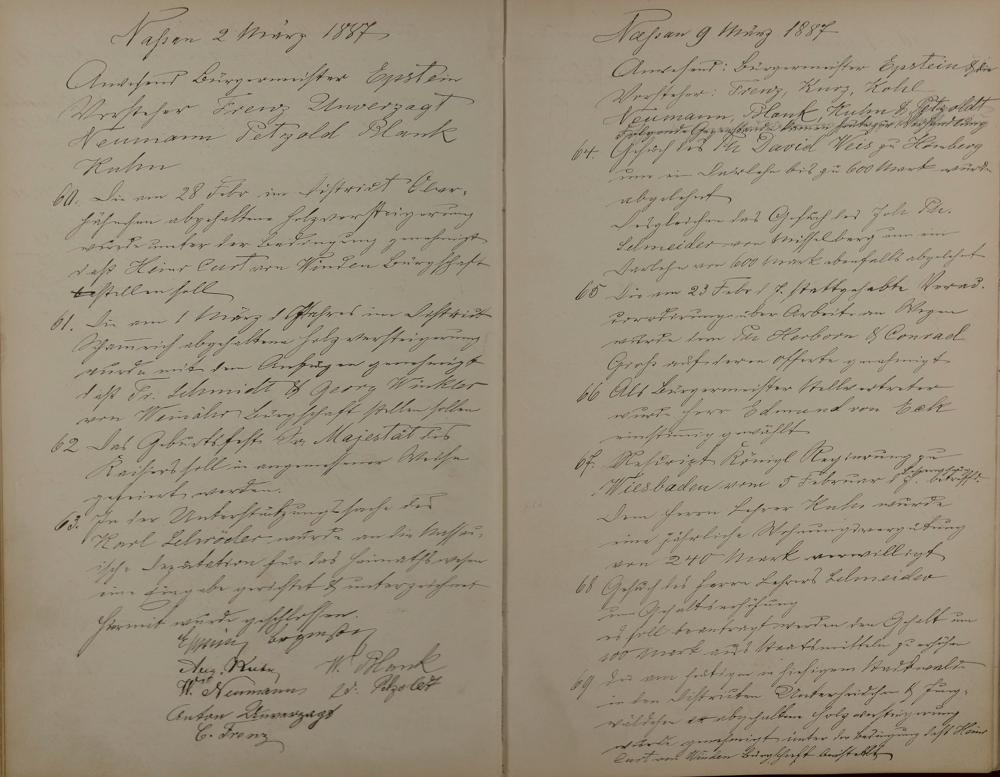 Nassau 2 März 1887
Anwesend Bürgermeister Epstein
Vorsteher Frenz Unverzagt
Neumann Petzold Blank
Kuhn
60. Die am 28 Febr im District Ober-
abgehaltene Holzversteigerung
wurde unter der Bedingung genehmigt
daß Heinr Curt von Winden Bürgschaft
bestellen soll
61. Die am 1 März d Jahres im District
abgehaltene Holzversteigerung
wurde mit dem Anfügen genehmigt
daß Fr. Schmidt & Georg Winkler
von Weinähr Bürgschaft stellen sollen
62 Das Geburtsfest Sr Majestät des
Kaisers soll in angemessener Weise
gefeiert werden.
63. In der Unterstützungssache des
Karl Schröder wurde an die Nassau-
ische Deputation für das Heimathswesen
eine Eingabe gerichtet & unterzeichnet
Hiermit wurde geschlossen.
Epstein, Bürgermstr
Aug. Kuhn, W. Blank
W. Neumann Ed. Petzoldt
Anton Unverzagt
C. Frenz
Nassau 9 März 1887
Anwesend: Bürgermeister Epstein & die
Vorsteher: Frenz, Kurz, Kohl
Neumann, Blank, Kuhn & Petzoldt
Folgende Gegenstände kamen heute zur Verhandlung
64. Gesuch des Ph David Weis zu Hömberg
um ein Darlehn bis zu 600 Mark wurde
abgelehnt
Desgleichen das Gesuch des Joh Ph.
Schneider von Misselberg um ein
Darlehn von 600 Mark ebenfalls abgelehnt
65 Die am 23 Febr d J. stattgehabte Verac-
cordirung über Arbeite an Wegen
wurde dem Ph Herborn & Conrad
Groß auf deren Offerte genehmigt
66 Als Bürgermeister Stellvertreter
wurde Herr Edmund von Eck
einstimmig gewählt
67. Rescript Königl Regierung zu
Wiesbaden vom 5 Februar d J. betreffd.
Dem Herrn Lehrer Kuhn wurde
eine jährliche Wohnungsvergütung
von 240 Mark verwilligt
68 Gesuch des Herrn Lehrers Schneider
um Gehaltserhöhung
es soll beantragt werden den Gehalt um
100 Mark aus Staatsmitteln zu erhöhen
69 Die am heutigen in hiesigem Stadtwalde
in den Districten &
abgehaltene Holzversteigerung
wurde genehmigt unter der Bedingung daß Heinr
Curt von Winden Bürgschaft bestellt